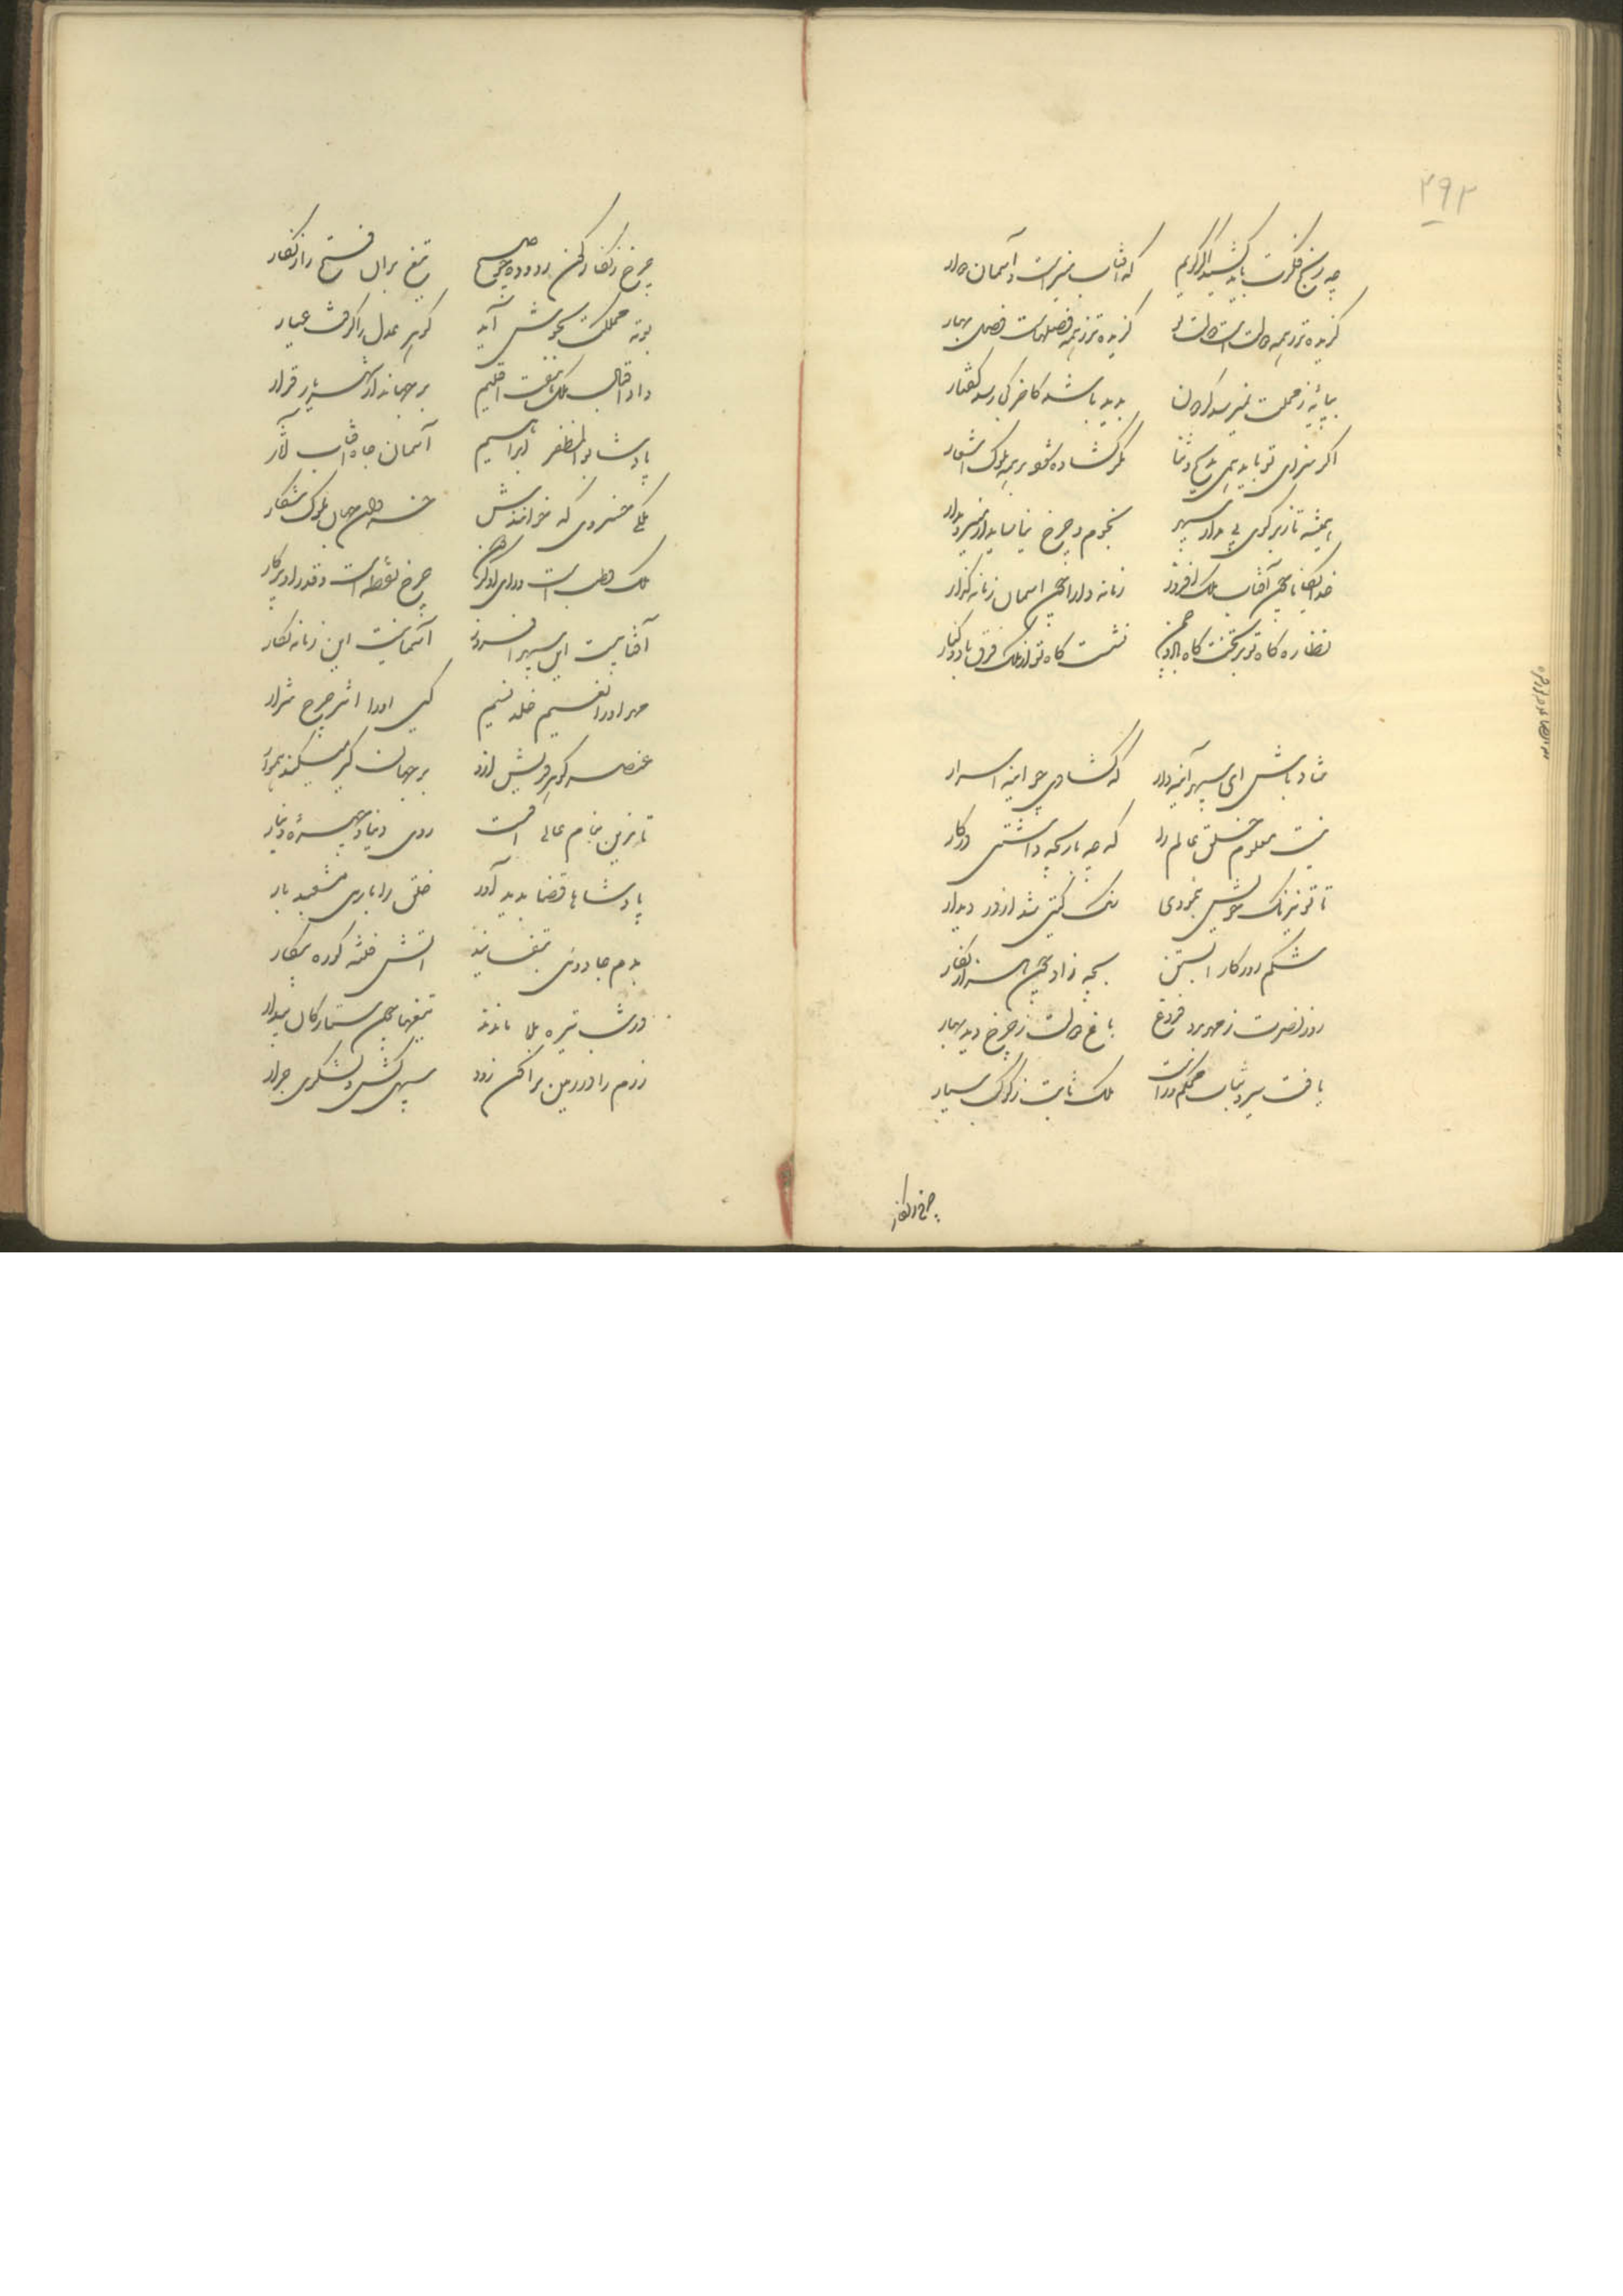 ۲۹۲
چه رنج فکرت باید کشید اگر گویم که آفتاب منیر است و آسمان دوار
گزیده تر ز همه دولت است دولت تو گزیده تر ز همه فصلهاست فصل بهار
بپایهٔ ز محلت نمیرسد گردون پدید باشد کآخر کجا رسد گفتار
اگر سزای تو باید همی مدیح و ثنا مگر گشاده شود بر همه ملوک اشعار
همیشه تا ز بر گوی بی مدار سپهر نجوم و چرخ نیاساید از مسیر و مدار
خدایگانا همچون آفتاب ملک افروز زمانه دارا همچون آسمان زمانه گذار
نظاره گاه تو بر تختگاه چون نشست گاه تو از ملک فرق باد و کنار
شاد باش ای سپهر آینه دار که گشادی چو آینه اسرار
نیست معلوم خلق عالم را که چه بازیچه داشتی در کار
تا تو نیرنگ خویش ننمودی رنگ گیتی نشد ز دور دیدار
شکم روزگار آبستن بچه زاد همچون هزار نگار
روز نصرت ز مهر برد فروغ باغ دولت ز چرخ دید بهار
یافت سیر و ثبات محکم و راست ملک ثابت ز کوکب سیار
چرخ زنگار
چرخ زنگارگون زدوده چو صبح تیغ بران فتح را زنگار
بوتهٔ مملکت بجوش آمد گوهر عدل را گرفت عیار
داد اقبال ملک هفت اقلیم بر جهاندار شهریار قرار
پادشا بوالمظفر ابراهیم آسمان جاه آفتاب آثار
ملکی خسروی که خوانندش خسروان جهان ملوک شکار
ملک قطب است و رای او گردون چرخ نقطه است و قدر او پرگار
آفتابیست این سپهر افروز آسمانیست این زمانه نگار
مهر او را نعیم خلد نسیم کین او را اثیر چرخ شرار
عنصر گوهر خویش ازو بر جهان کبر میکند هموار
تا مزین بنام عالی اوست روی دینار و چهرهٔ دینار
پادشاها قضا پدید آورد خلق را بازی مشعبد بار
بدم جادوی بتفسانید آتش فتنه کورهٔ پیکار
در شب تیره بلا ماندند تیغها چون ستارگان بیدار
رزم را در زمین پراکن زود سپهی گشن و لشکری جرار